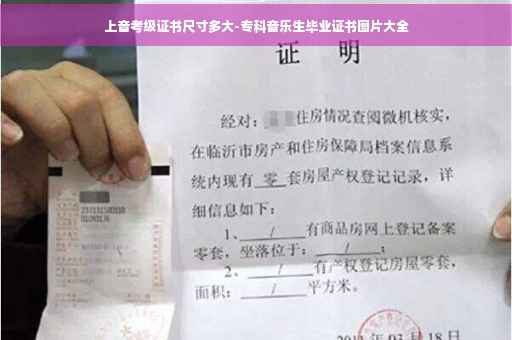 上音考级证书尺寸多大-专科音乐生毕业证书图片大全
证 明
经对:住房情况查阅微机核实,
在临沂市房产和住房保障局档案信息系
统内现有 零 套房屋产权登记记录,详
细信息如下:
1、 / 有商品房网上登记备案
零套,坐落位于: / ;
2、 / 有产权登记房屋零套,
面积: / 平方米。
03月18日